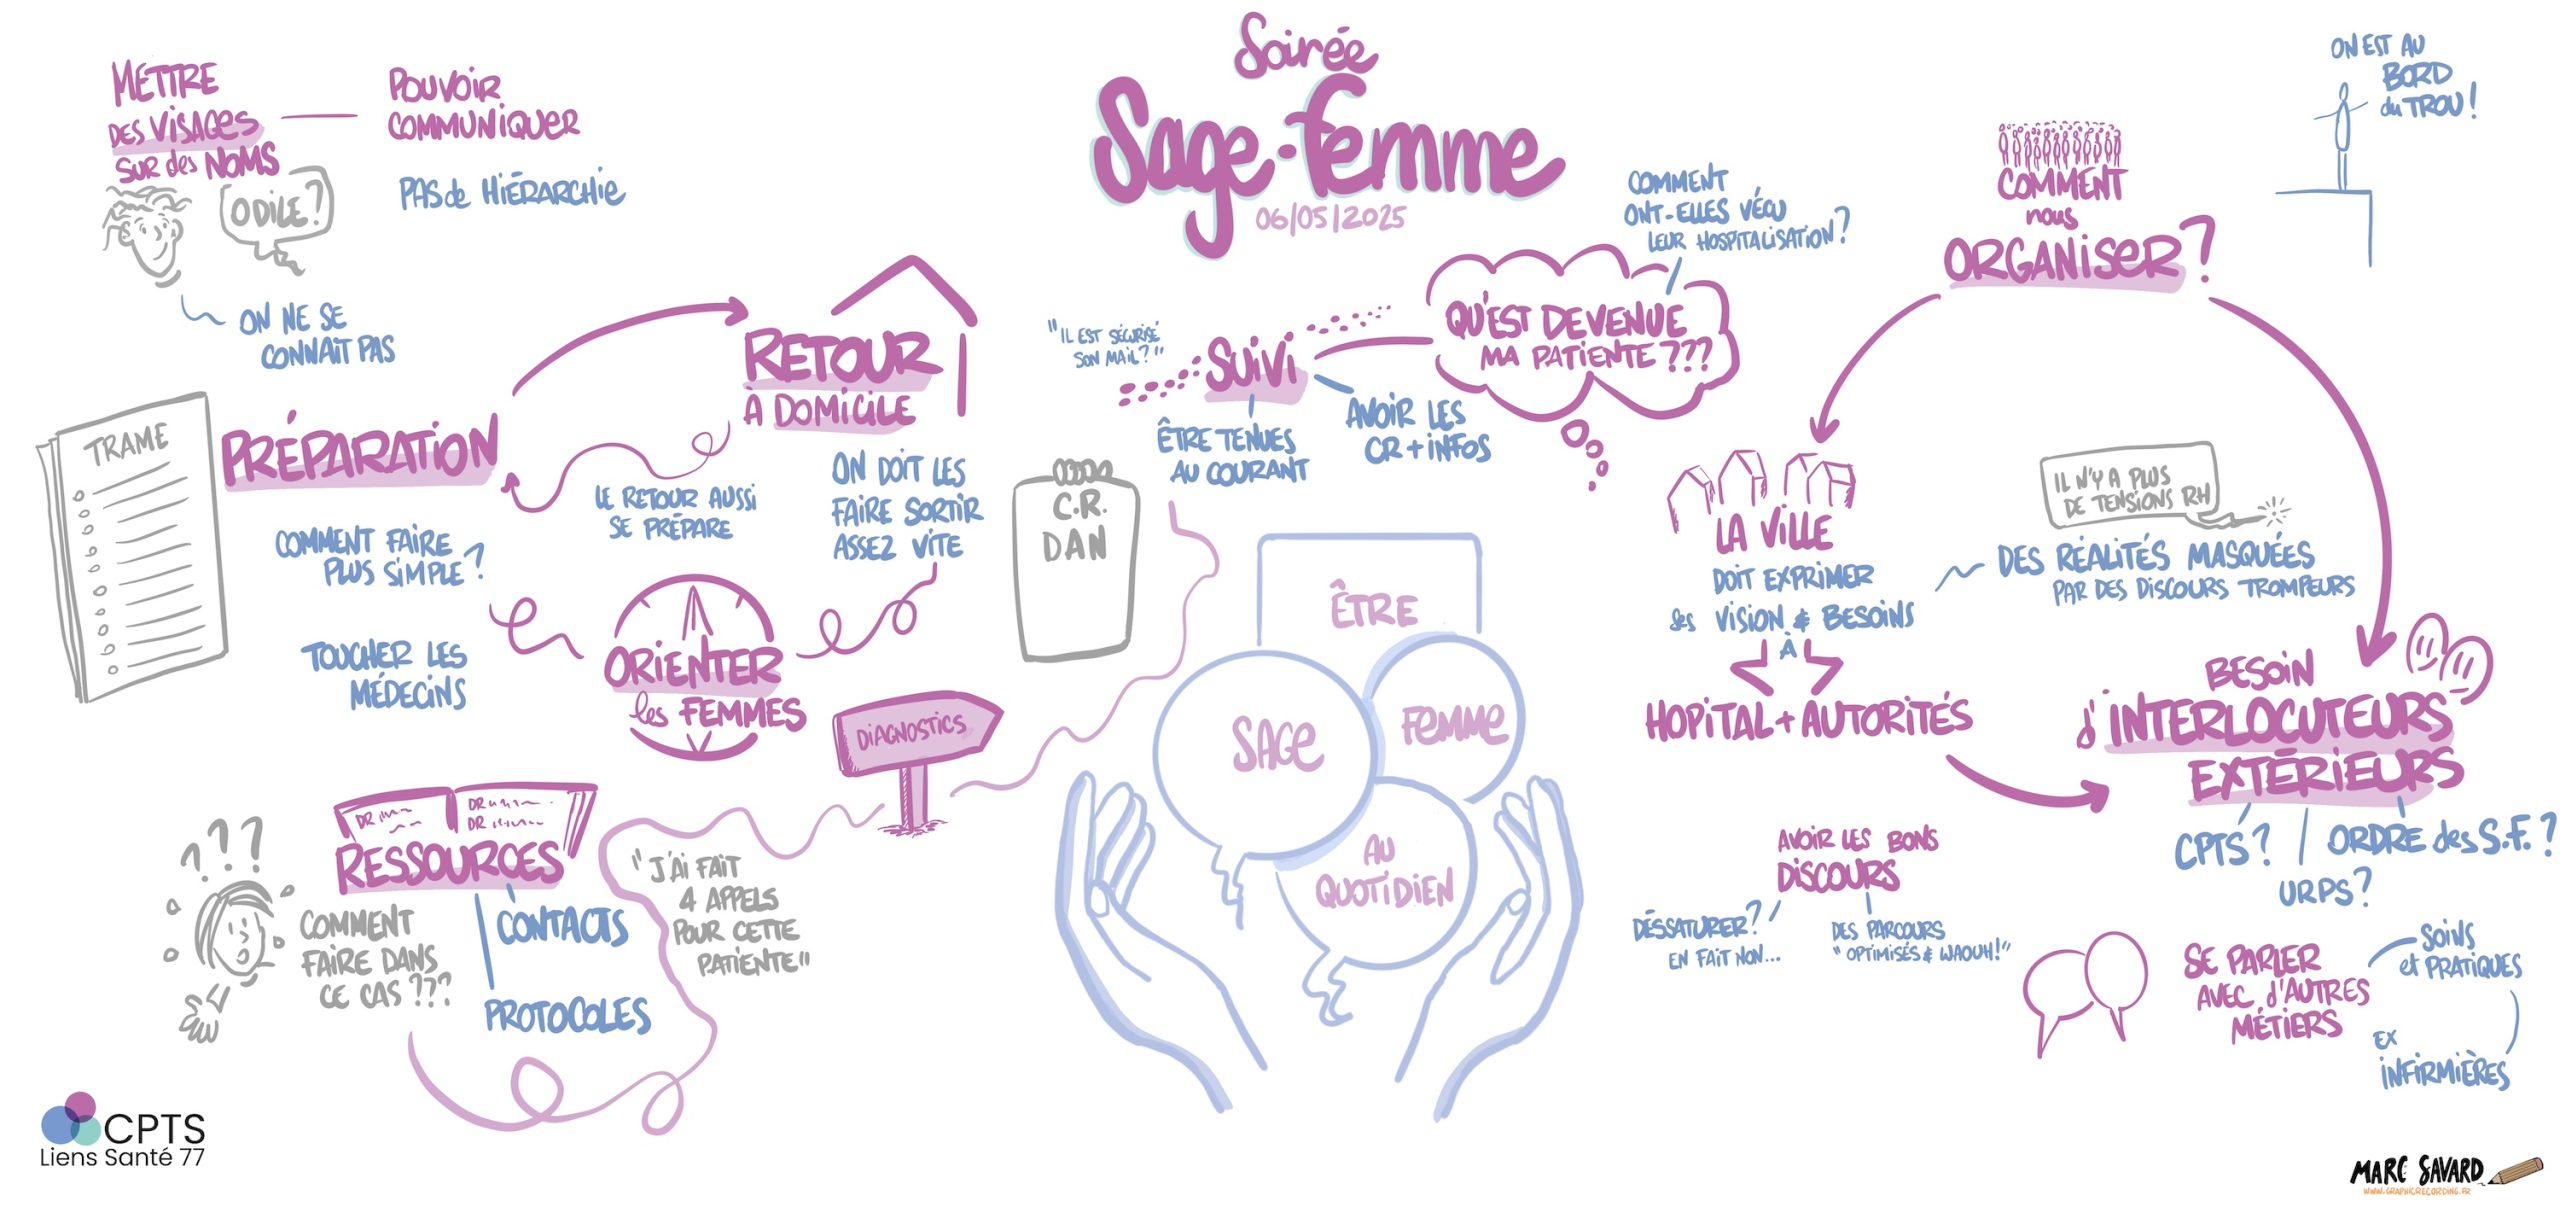 Soirée
Sage-Femme
06/05/2025
METTRE
DES VISAGES
SUR des NOMS
POUVOIR
COMMUNIQUER
PAS de HIÉRARCHIE
ODILE?
ON NE SE
CONNAIT PAS
TRAME
PRÉPARATION
COMMENT FAIRE
PLUS SIMPLE?
TOUCHER LES
MÉDECINS
RETOUR
À DOMICILE
LE RETOUR AUSSI
SE PRÉPARE
ON DOIT LES
FAIRE SORTIR
ASSEZ VITE
ORIENTER
les FEMMES
DIAGNOSTICS
RESSOURCES
DR
DR
DR
CONTACTS
PROTOCOLES
???
COMMENT
FAIRE DANS
CE CAS ???
"J'AI FAIT
4 APPELS
POUR CETTE
PATIENTE"
"IL EST SÉCURISÉ
SON MAIL?"
SUIVI
ÊTRE TENUES
AU COURANT
AVOIR LES
CR + INFOS
C.R.
DAN
QU'EST DEVENUE
MA PATIENTE ???
COMMENT
ONT-ELLES VÉCU
LEUR HOSPITALISATION?
ÊTRE
SAGE
FEMME
AU
QUOTIDIEN
COMMENT
nous
ORGANISER?
ON EST AU
BORD
du TROU!
LA VILLE
DOIT EXPRIMER
ses VISION & BESOINS
À
HOPITAL + AUTORITÉS
IL N'Y A PLUS
DE TENSIONS RH
DES RÉALITÉS MASQUÉES
PAR DES DISCOURS TROMPEURS
BESOIN
d'INTERLOCUTEURS
EXTÉRIEURS
CPTS?
URPS?
ORDRE des S.F.?
AVOIR LES BONS
DISCOURS
DÉSSATURER?
EN FAIT NON...
DES PARCOURS
"OPTIMISÉS & WAOUH!"
SE PARLER
AVEC d'AUTRES
MÉTIERS
SOINS
et PRATIQUES
EX
INFIRMIÈRES
CPTS
Liens Santé 77
MARC SAVARD
WWW.GRAPHICRECORDING.FR